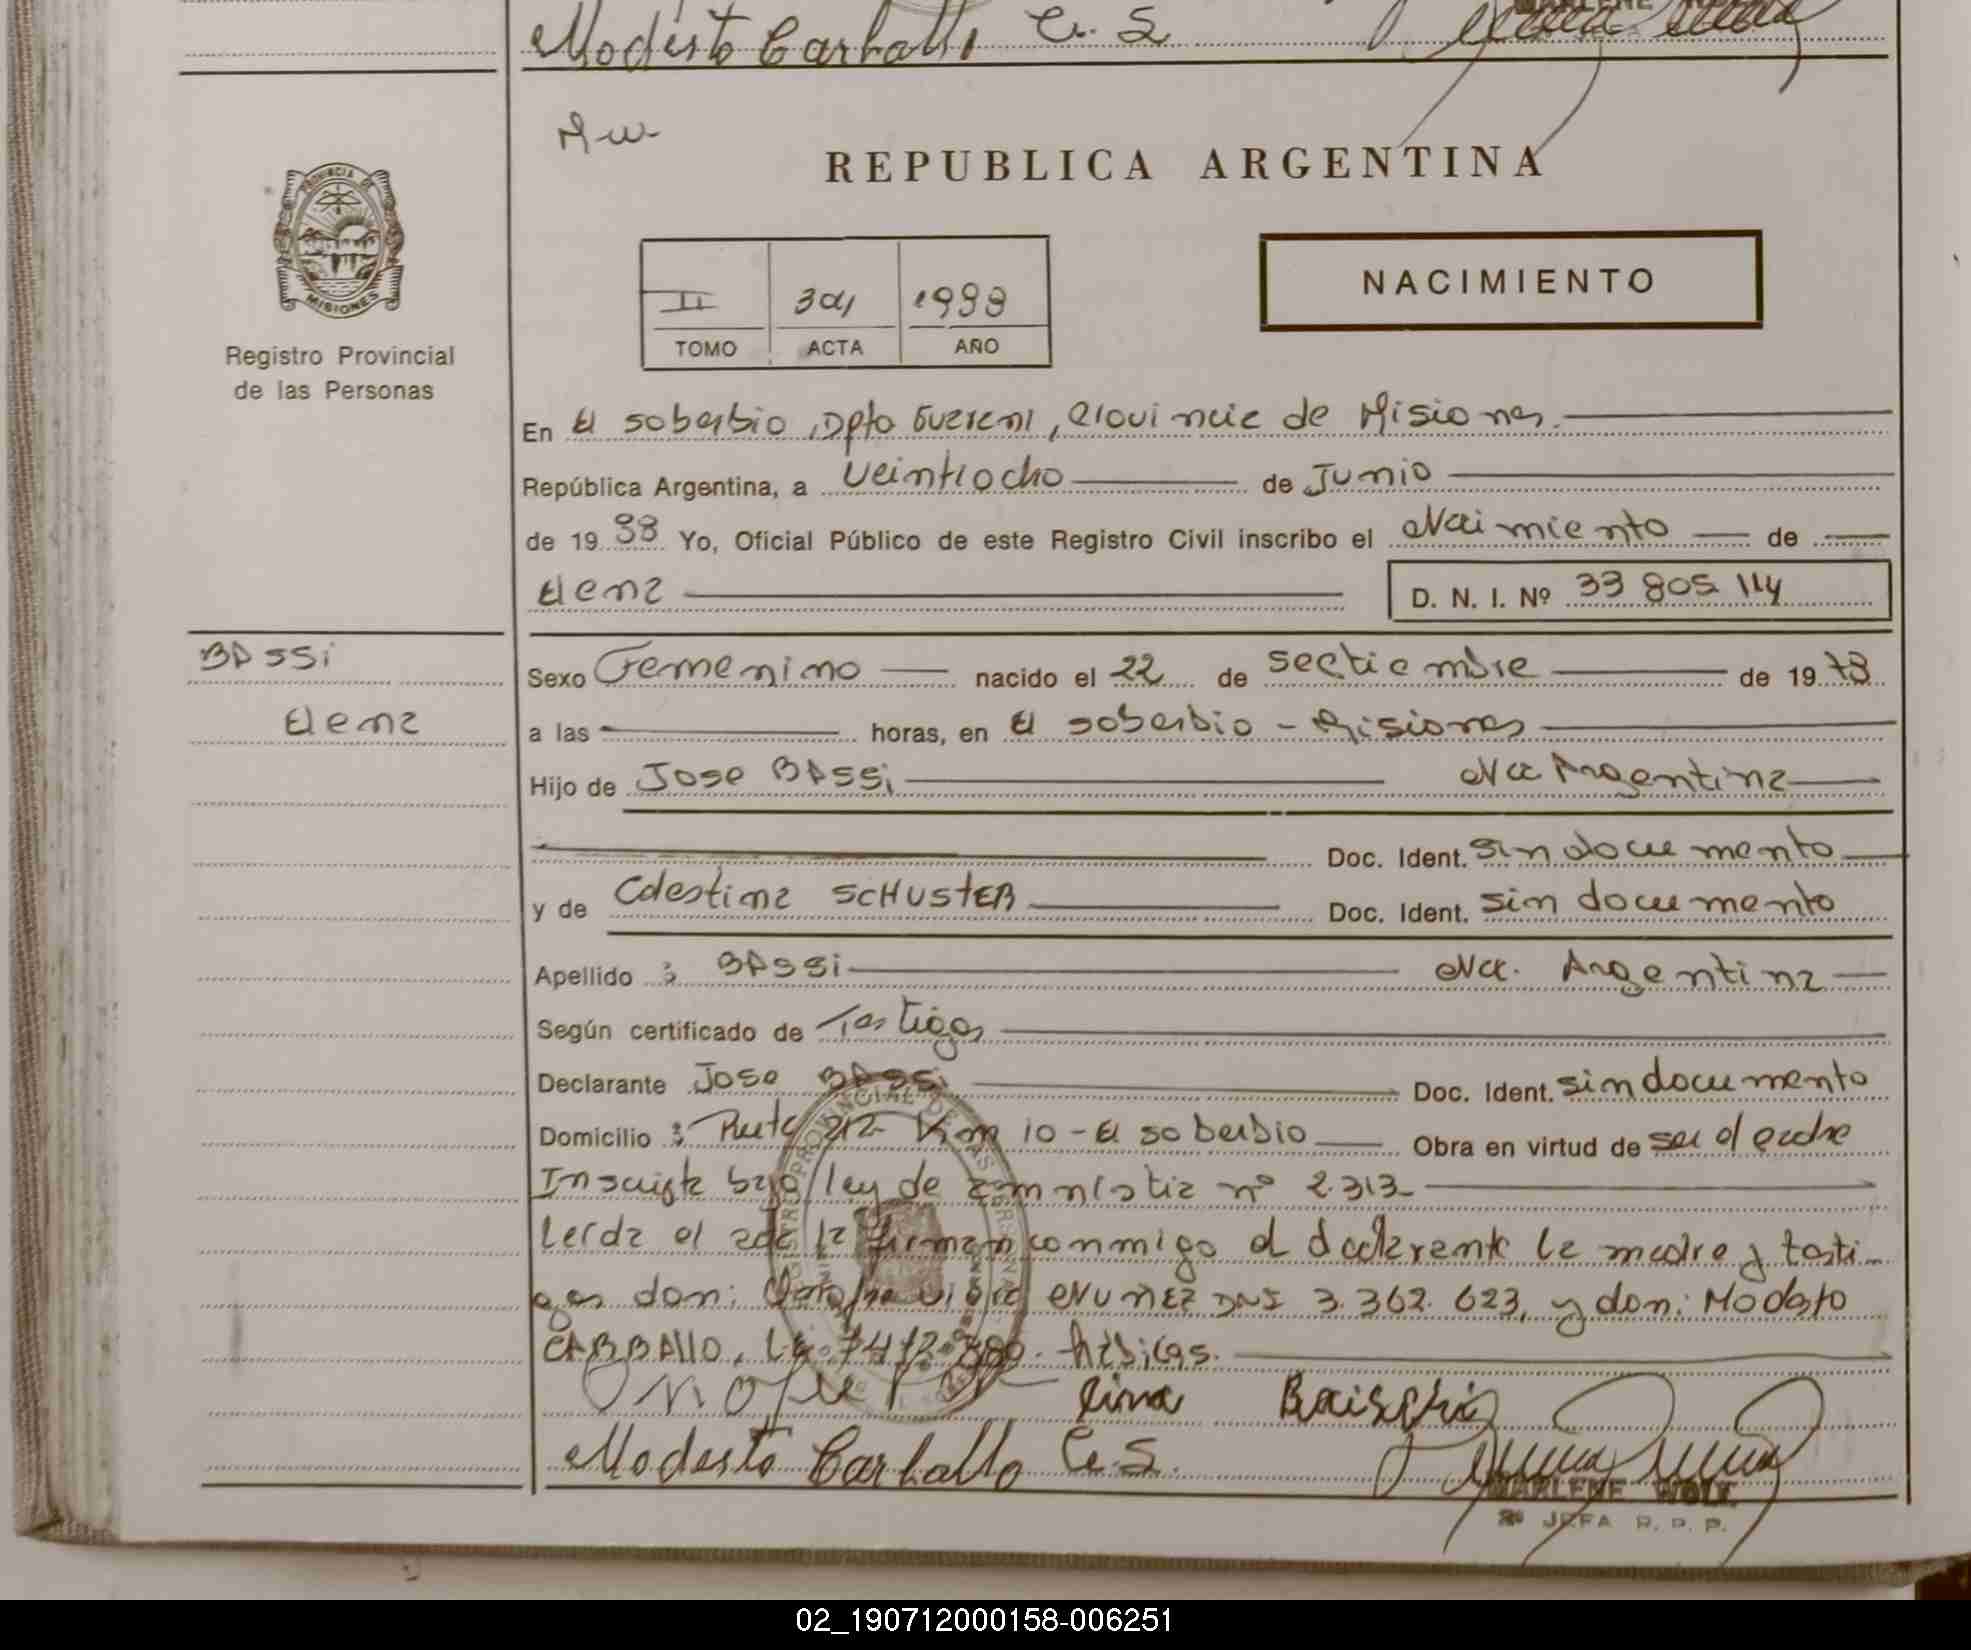 Modesto Carballo C. S.
REPUBLICA ARGENTINA
PROVINCIA DE
MISIONES
Registro Provincial
de las Personas
NACIMIENTO
II 301 1988
TOMO ACTA AÑO
En El soberbio, Dpto Guarani, Provincia de Misiones.
República Argentina, a Veintiocho de Junio
de 19 88 Yo, Oficial Público de este Registro Civil inscribo el Nacimiento de
Elena
D. N. I. Nº 33 805 114
BASSi
Elena
Sexo Femenino nacido el 22 de sectiembre de 19 78
a las horas, en El soberbio - Misiones
Hijo de Jose BASSi Nac Argentina
Doc. Ident. sin documento
y de Celestina SCHUSTER Doc. Ident. sin documento
Apellido : BASSi Nac. Argentina
Según certificado de Testigos
Declarante Jose BASSi Doc. Ident. sin documento
Domicilio : Ruta 212 Km 10 - El soberbio Obra en virtud de ser el padre
Inscripta bajo ley de amnistia nº 2.313
Leida el acta la firman conmigo el declarante la madre y testi-
gos don: NuñEz DNI 3.362.623, y don: Modesto
CARBAllO, habiles.
Modesto Carballo C. S.
MARLENE WOLF
JEFA R. P. P.
02_190712000158-006251